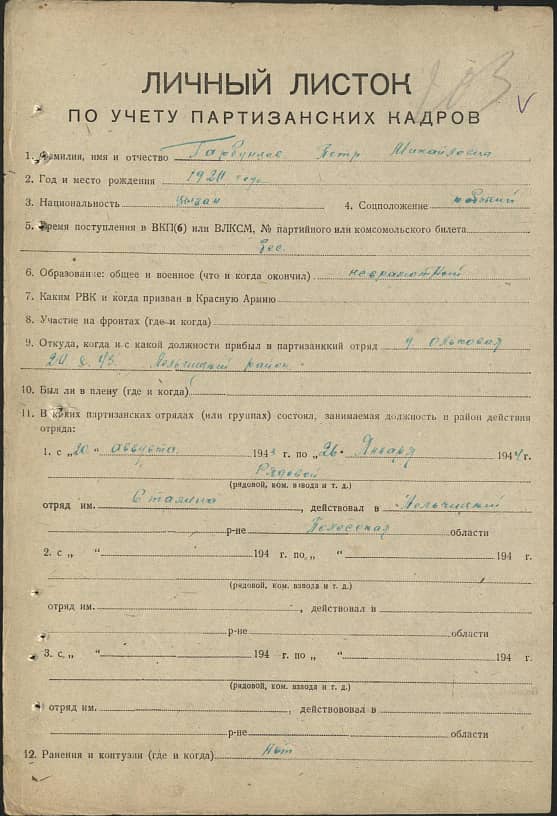 203 V
ЛИЧНЫЙ ЛИСТОК
ПО УЧЕТУ ПАРТИЗАНСКИХ КАДРОВ
1. Фамилия, имя и отчество Петр Михайлович
2. Год и место рождения 1920 года
3. Национальность цыган 4. Соцположение рабочий
5. Время поступления в ВКП(б) или ВЛКСМ, № партийного или комсомольского билета
бес.
6. Образование: общее и военное (что и когда окончил) неграмотный
7. Каким РВК и когда призван в Красную Армию
8. Участие на фронтах (где и когда)
9. Откуда, когда и с какой должности прибыл в партизанккий отряд д Ольховая
20 8. 43. Лельчицкий район.
10. Был ли в плену (где и когда)
11. В каких партизанских отрядах (или группах) состоял, занимаемая должность и район действия
отряда:
1. с „20“ Августа 1943 г. по „26“ Января 1944 г.
Рядовой
(рядовой, ком. взвода и т. д.)
отряд им. Сталина, действовал в Лельчицкий
р-не Полесская области
2. с „ “ 194 г. по „ “ 194 г.
(рядовой, ком. взвода и т. д.)
отряд им. , действовал в
р-не области
3. с „ “ 194 г. по „ “ 194 г.
(рядовой, ком. взвода и т. д.)
отряд им. , действововал в
р-не области
12. Ранения и контузии (где и когда) Нет